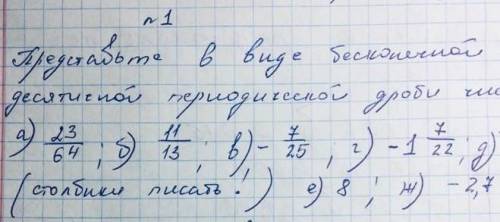 №1
Представьте в виде бесконечной
десятичной периодической дроби чис
а) 23/64; б) 11/13; в) - 7/25; г) -1 7/22; д)
(столбики писать!) е) 8; ж) -2,7